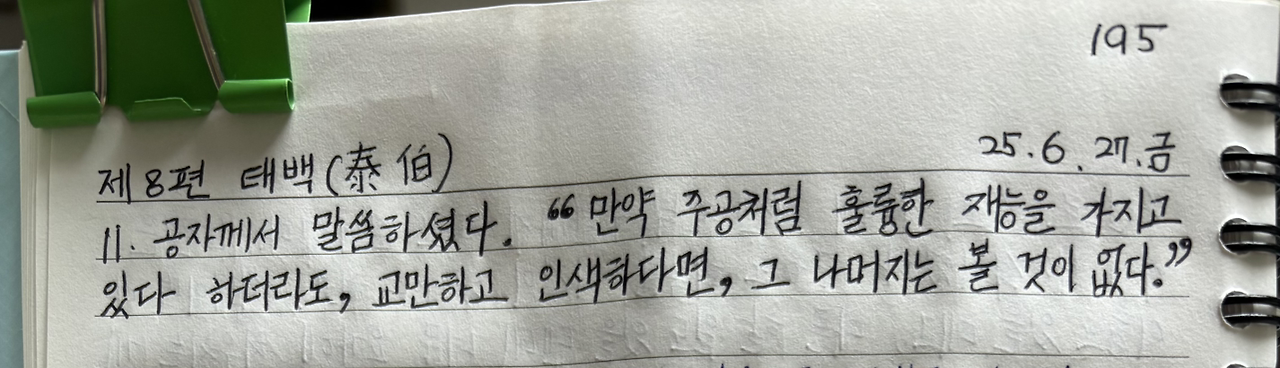 195
25.6.27.금
제8편 태백(泰伯)
11. 공자께서 말씀하셨다. "만약 주공처럼 훌륭한 재능을 가지고
있다 하더라도, 교만하고 인색하다면, 그 나머지는 볼 것이 없다."